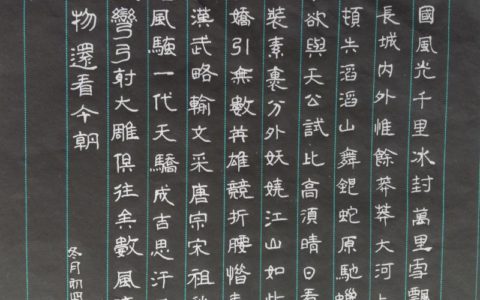 國風光千里冰封萬里雪飄
長城內外惟餘莽莽大河上
頓失滔滔山舞銀蛇原馳蠟
欲與天公試比高須晴日看
裝素裹分外妖嬈江山如此
嬌引無數英雄競折腰惜
漢武略輸文采唐宗宋祖
風騷一代天驕成吉思汗
彎弓射大雕俱往矣數風
物還看今朝
冬月初